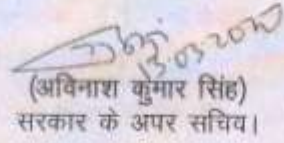 13.03.2020
(अविनाश कुमार सिंह)
सरकार के अपर सचिव।